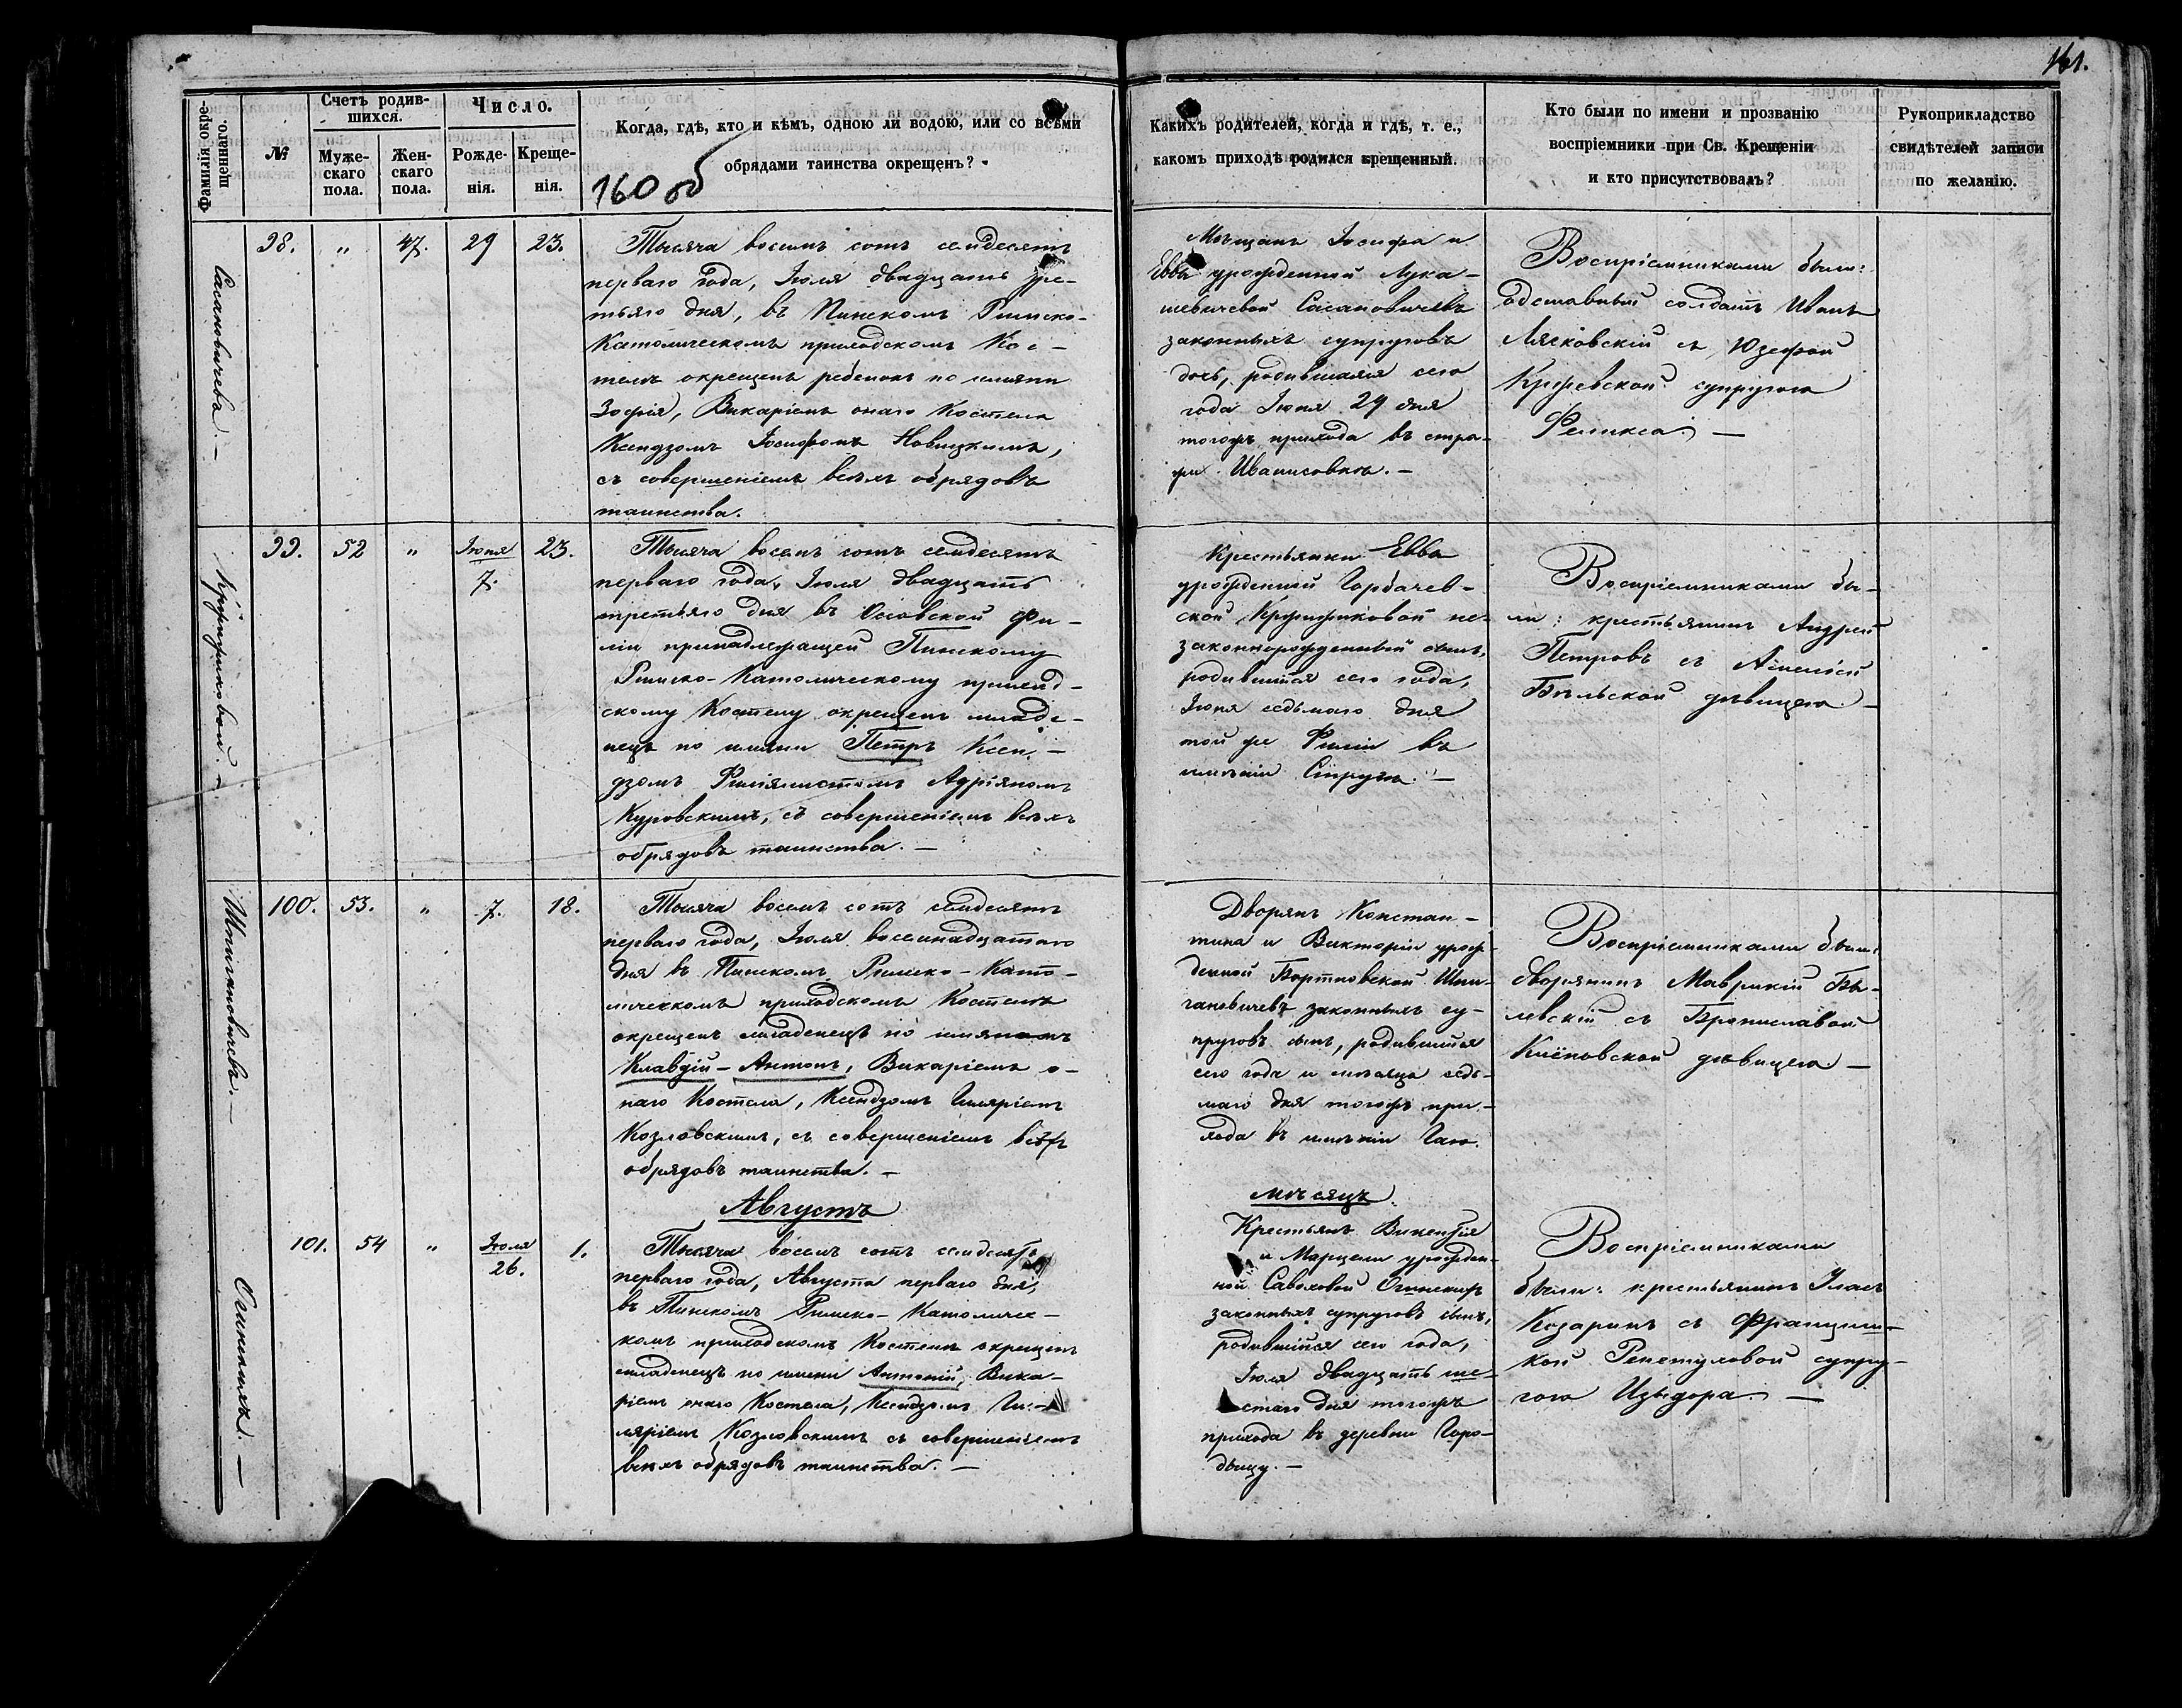 161.
Фамилія окре-
щеннаго.
№
Счетъ родив-
шихся.
Муже-
скаго
пола.
Жен-
скаго
пола.
Число.
Рожде-
нія.
Креще-
нія.
Когда, гдѣ, кто и кѣмъ, одною ли водою, или со всѣми
обрядами таинства окрещенъ?
160 об
Какихъ родителей, когда и гдѣ, т. е.,
какомъ приходѣ родился крещенный.
Кто были по имени и прозванію
воспріемники при Св. Крещеніи
и кто присутствовалъ?
Рукоприкладство
свидѣтелей записи
по желанію.
Сасановичева. —
98. " 47. 29 23.
Тысяча восемь сотъ семдесятъ
перваго года, Іюля двадцать тре-
тьяго дня, въ Пинскомъ Римско-
Католическомъ приходскомъ Кос-
телѣ окрещенъ ребенокъ по имяни
Зофія, Викаріемъ онаго Костела
Ксендзомъ Іосифомъ Новицкимъ,
съ совершеніемъ всѣхъ обрядовъ
таинства.
Мѣщанъ Іосифа и
Еввы урожденной Лука-
шевичевой Сасановичевъ
законныхъ супруговъ
дочь, родившаяся сего
года Іюня 29 дня
тогожъ прихода въ
Воспріемниками были:
отставный солдатъ Иванъ
Лясковскій съ Юзефой
супругою
Феликса. —
99. 52 " Іюня 23.
7.
Тысяча восемь сотъ семдесятъ
перваго года, Іюля двадцать
третьяго дня въ Осовской фи-
ліи принадлежащей Пинскому
Римско-Католическому приход-
скому Костелу окрещенъ младе-
нецъ по имяни Петръ Ксен-
дзомъ Филіялистомъ Адріяномъ
Куровскимъ, съ совершеніемъ всѣхъ
обрядовъ таинства. —
Крестьянки Евва
урожденной Горбачев-
ской не-
законнорожденный сынъ,
родившійся сего года,
Іюня седьмаго дня
той же Филіи въ
имѣніи Струга. —
Воспріемниками бы-
ли: крестьянинъ Андрей
Петровъ съ
Бѣльской дѣвицею —
Шпигановичевъ. —
100. 53. " 7. 18.
Тысяча восемь сотъ семдесятъ
перваго года, Іюля восемнадцатаго
дня въ Пинскомъ Римско-Като-
лическомъ приходскомъ Костелѣ
окрещенъ младенецъ по имянамъ
Клавдій-Антонъ, Викаріемъ о-
наго Костела, Ксендзомъ Гиляріемъ
Козловскимъ, съ совершеніемъ всѣхъ
обрядовъ таинства. —
Дворянъ Констан-
тина и Викторіи урож-
денной Бортновской Шпи-
гановичевъ законныхъ су-
пруговъ сынъ, родившійся
сего года и мѣсяца седь-
маго дня тогожъ при-
хода въ имѣніи
Воспріемниками были:
дворянинъ Маврикій Бы-
левскій съ Брониславой
дѣвицею —
Августъ
мѣсяцъ
Огинскихъ. —
101. 54 " Іюля 1.
26.
Тысяча восемь сотъ семдесятъ
перваго года, Августа перваго дня,
въ Пинскомъ Римско-Католичес-
комъ приходскомъ Костелѣ окрещенъ
младенецъ по имени Антоній, Вика-
ріемъ онаго Костела, Ксендзомъ Ги-
ляріемъ Козловскимъ съ совершеніемъ
всѣхъ обрядовъ таинства. —
Крестьянъ Викентія
и Марцели урожден-
ной Саваховой Огинскихъ
законныхъ супруговъ сынъ,
родившійся сего года,
Іюля двадцать ше-
стаго дня тогожъ
прихода въ деревни Горо-
дыщу. —
Воспріемниками
были: крестьянинъ
Козаринъ съ Францишк-
кой Репетуховой супру-
гою Изыдора —